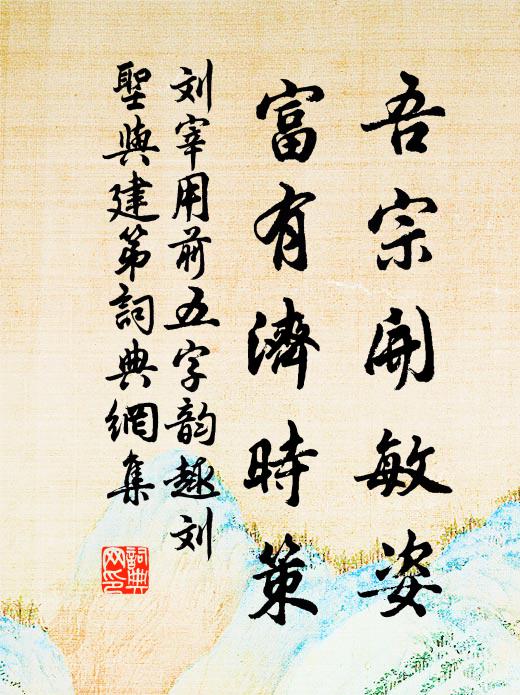 吾宗開敏姿
富有濟時策
刘宰用前五字韵趣刘
聖與建第詞典網集
詞典网印